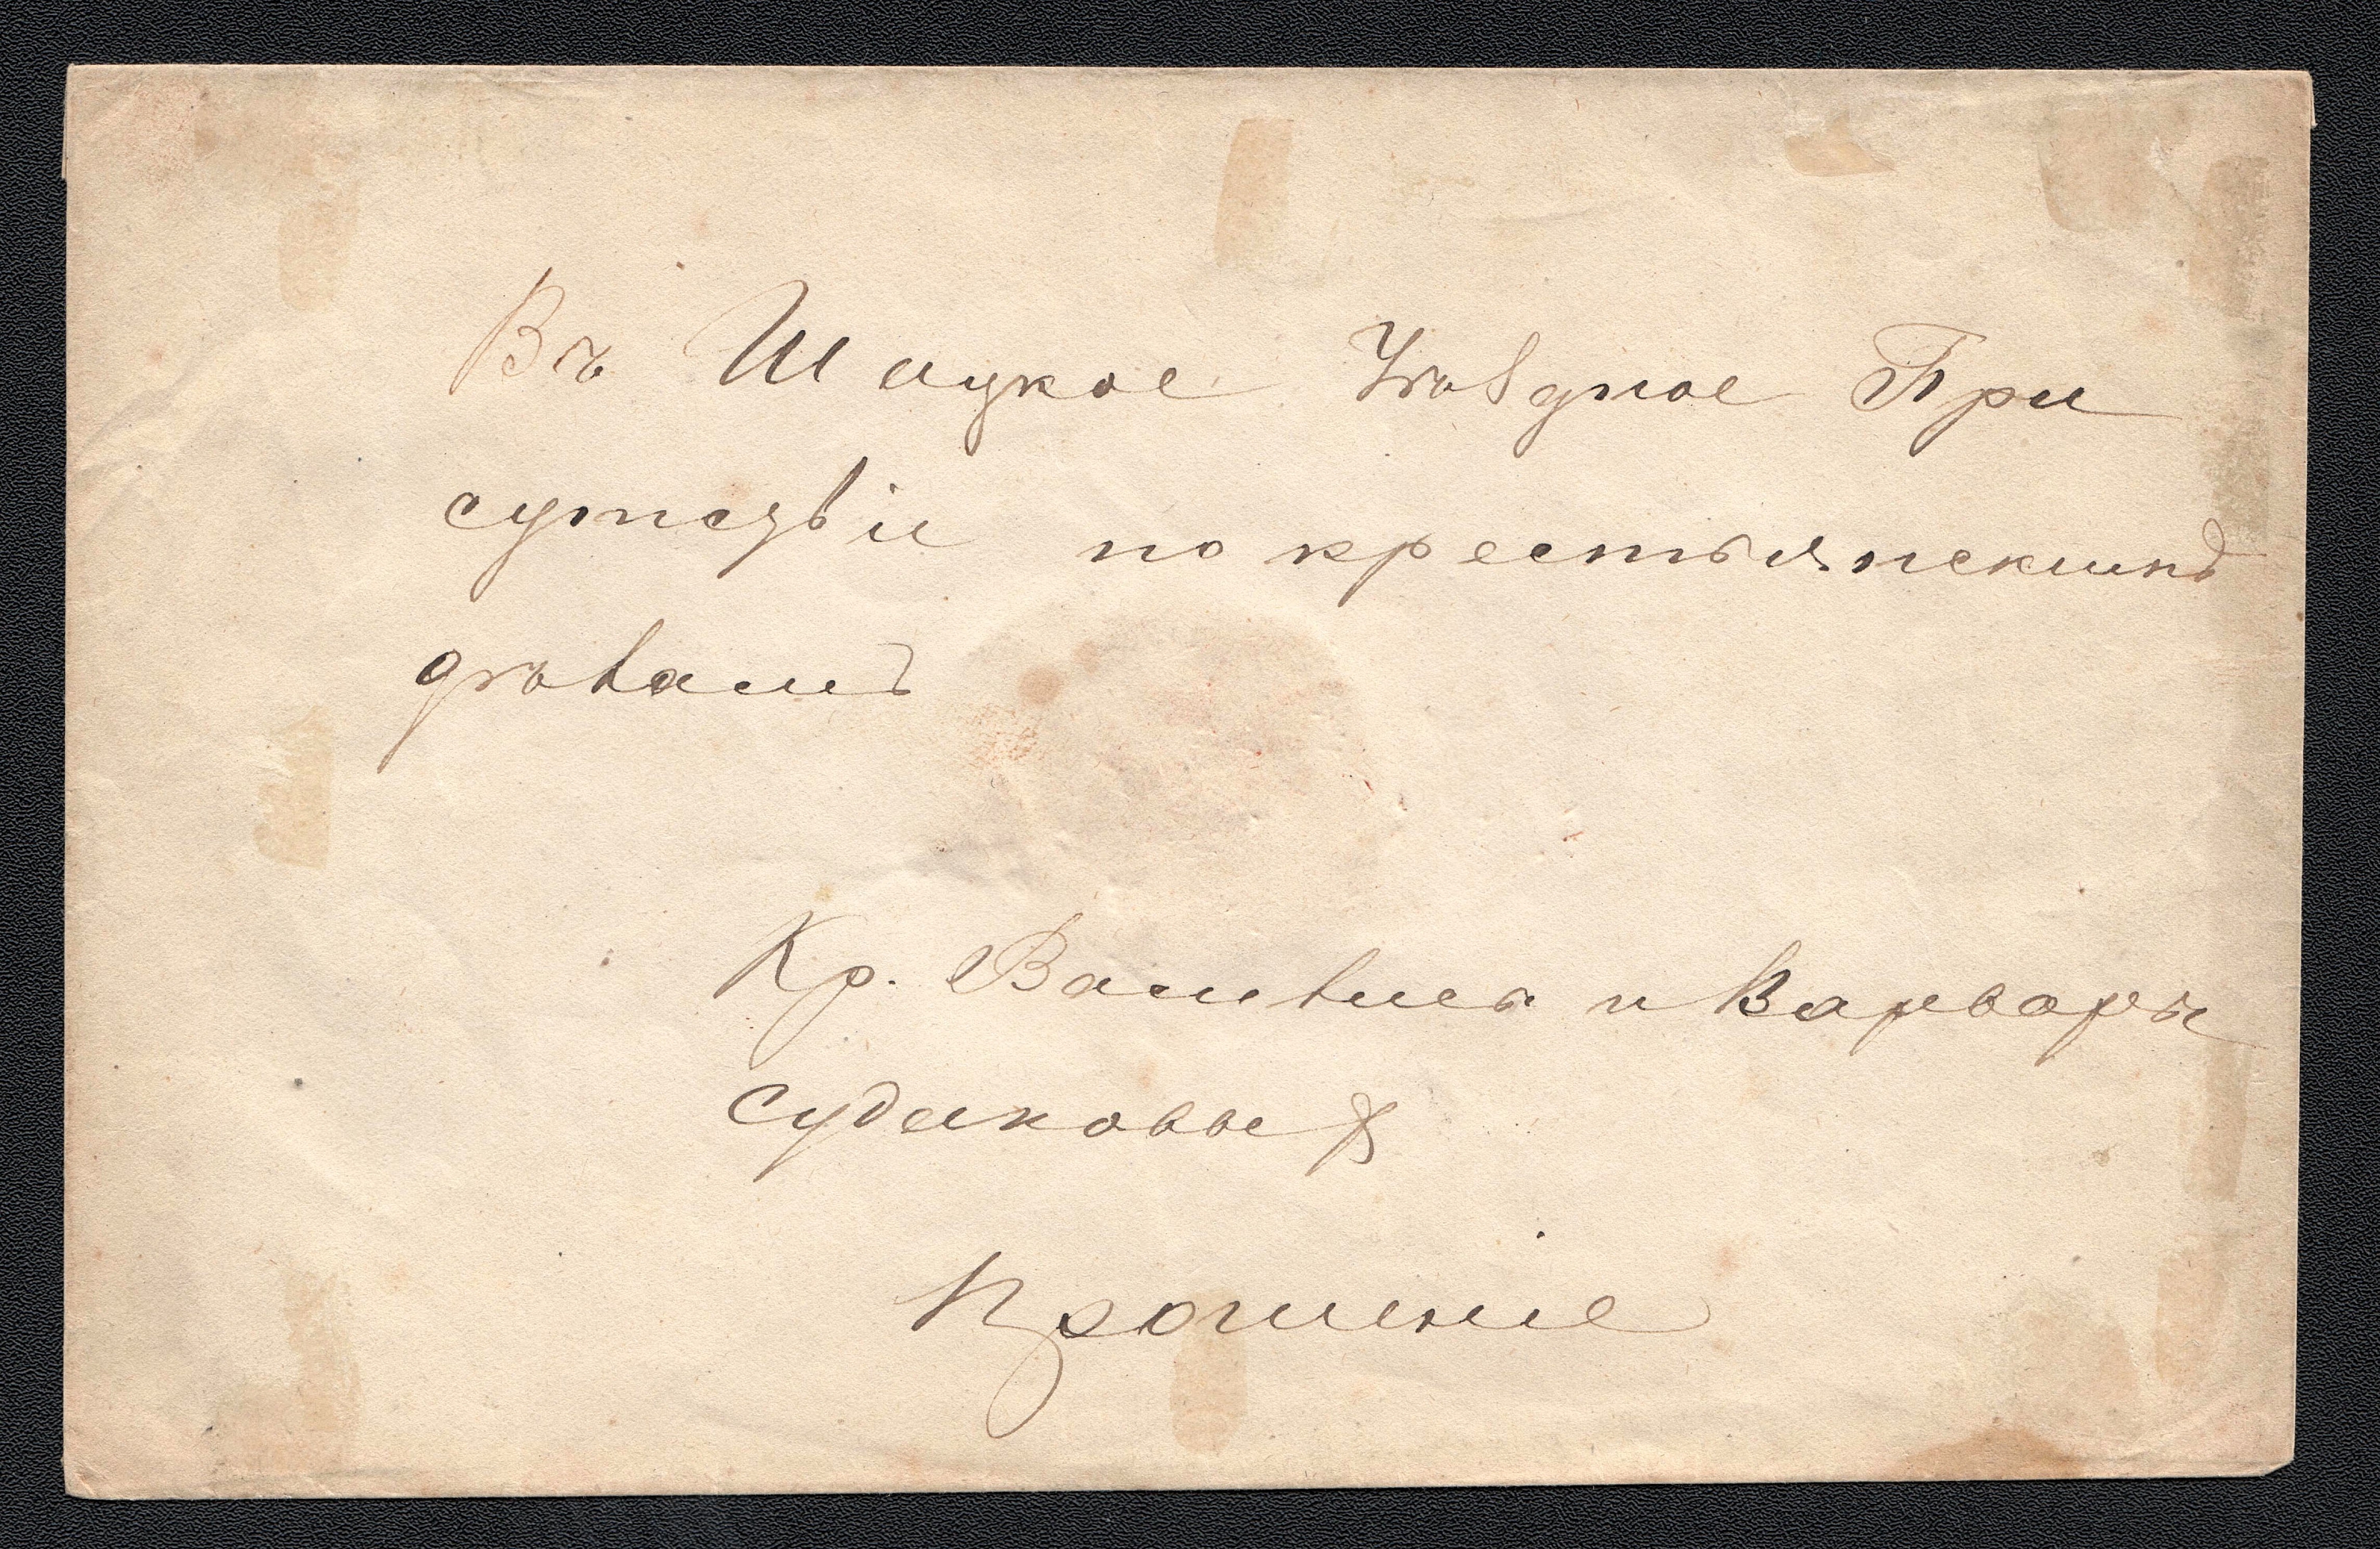 Въ Шацкое Уѣздное При
сутсзвіи по крестьянскимъ
дѣламъ
Кр. Василья и Варвары
Судаковых
Прошеніе